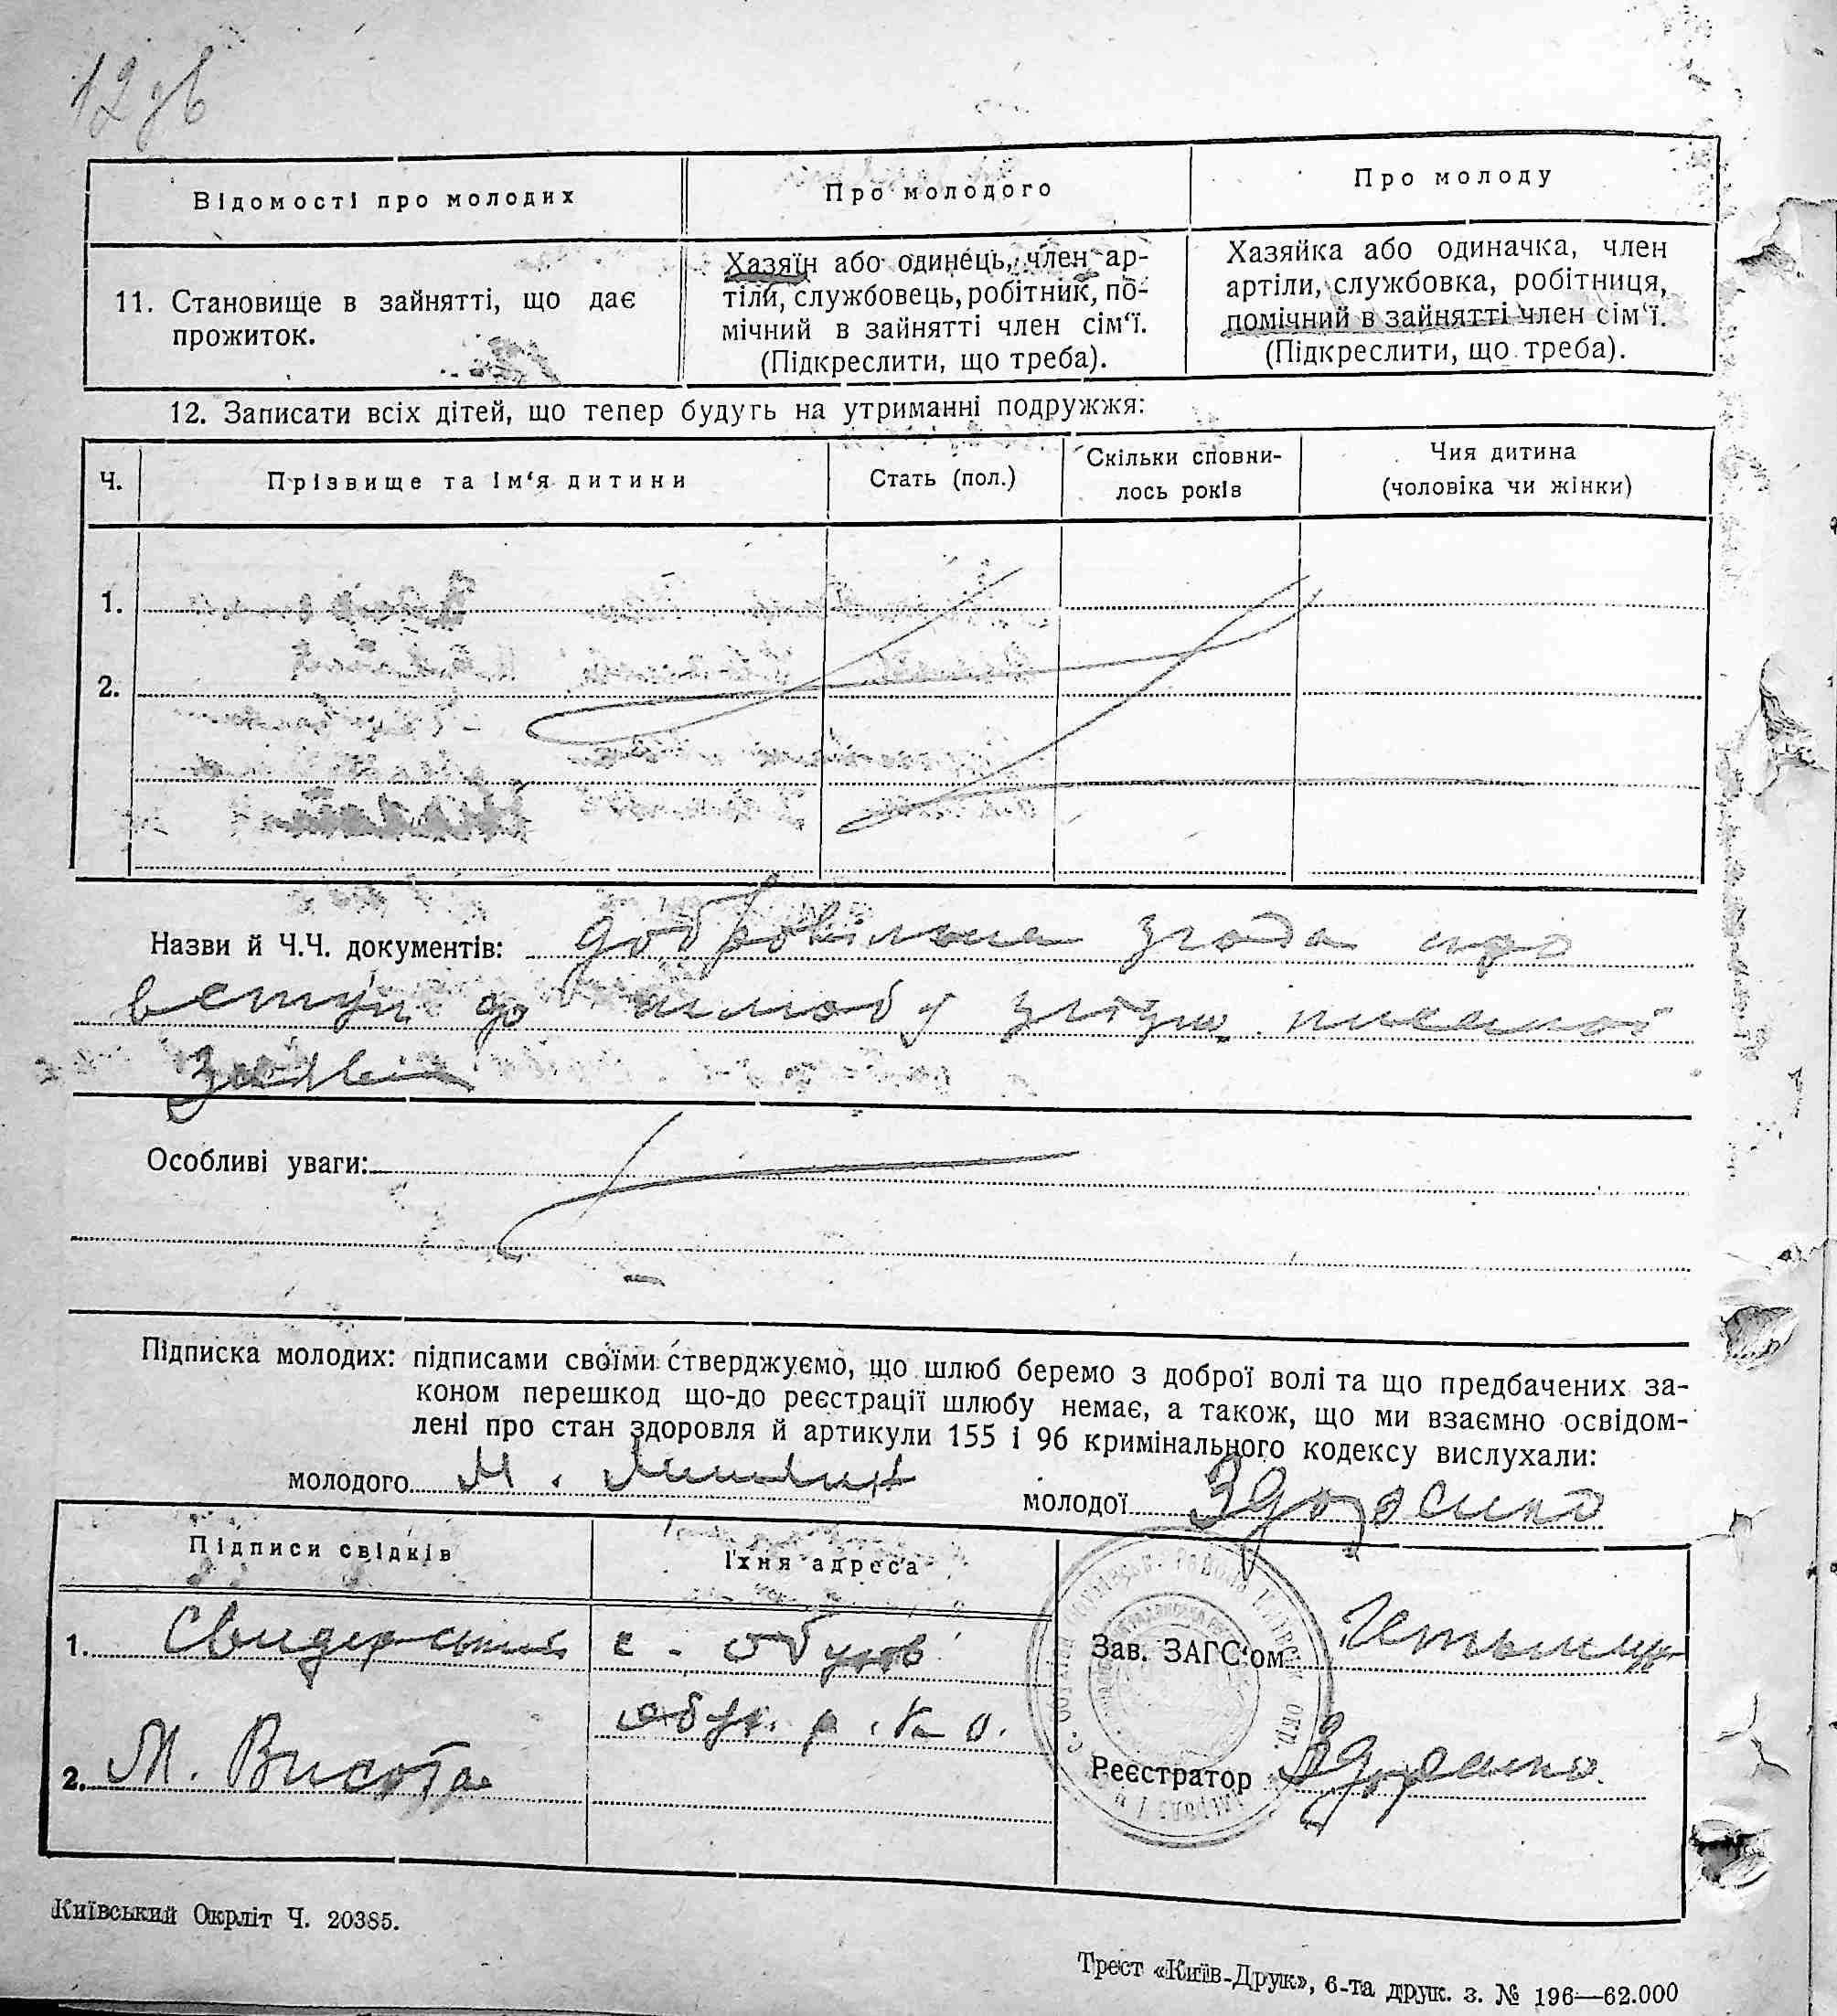 12 зв
Відомості про молодих
Про молодого
Про молоду
11. Становище в зайнятті, що дає
прожиток.
Хазяїн або одинець, член ар-
тілі, службовець, робітник, по-
мічний в зайнятті член сім‘ї.
(Підкреслити, що треба).
Хазяйка або одиначка, член
артіли, службовка, робітниця,
помічний в зайнятті член сім‘ї.
(Підкреслити, що треба).
12. Записати всіх дітей, що тепер будуть на утриманні подружжя:
Ч.
Прізвище та ім‘я дитини
Стать (пол.)
Скільки сповни-
лось років
Чия дитина
(чоловіка чи жінки)
1.
2.
Назви й Ч.Ч. документів: добровільна згода про
вступ до шлюбу згідно писаної
заяви
Особливі уваги:
Підписка молодих: підписами своїми стверджуємо, що шлюб беремо з доброї волі та що предбачених за-
коном перешкод що-до реєстрації шлюбу немає, а також, що ми взаємно освідом-
лені про стан здоровля й артикули 155 і 96 кримінального кодексу вислухали:
молодого М.
молодої
Підписи свідків
Їхня адреса
1. Свидерський
с. Обухів
Обух. р. К о.
2. М. Висота
Зав. ЗАГС‘ом
Реєстратор
Київський Окрліт Ч. 20385.
Трест «Київ-Друк», 6-та друк. з. № 196—62.000